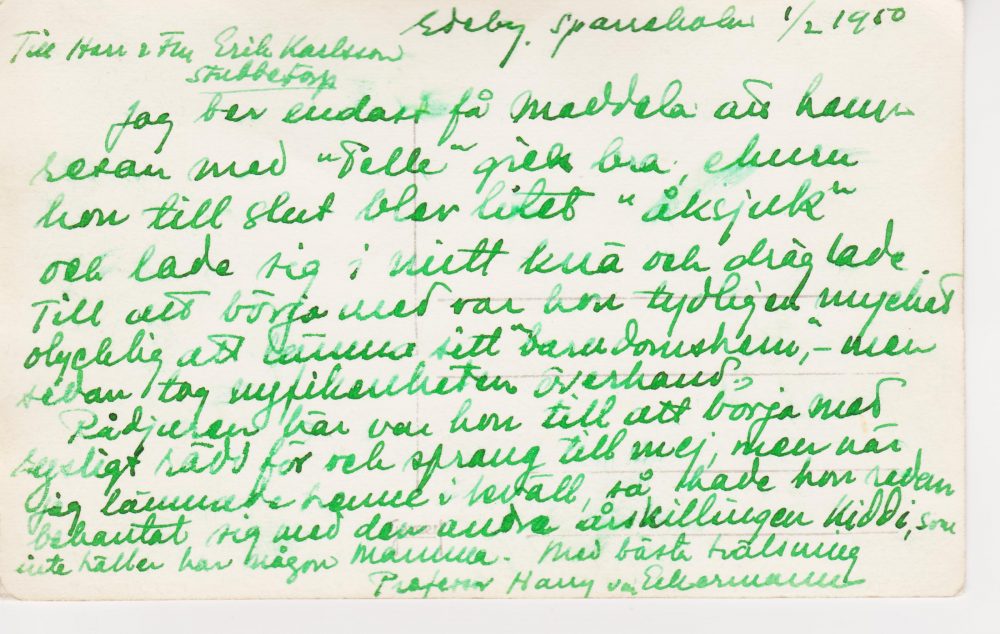 Edeby, Sparreholm 1/2 1950
Till Herr & Fru Erik Karlsson
Stubbetorp
Jag ber endast få meddela att hem-
resan med "Pelle" gick bra, ehuru
hon till slut blev litet "åksjuk"
och lade sig i mitt knä och dräglade.
Till att börja med var hon tydligen mycket
olycklig att lämna sitt "barndomshem", - men
sedan tog nyfikenheten överhand.
Rådjuren här var hon till att börja med
rysligt rädd för och sprang till mej, men när
jag lämnade henne i kväll, så hade hon redan
bekantat sig med den andra årskillingen Kiddi, som
inte häller har någon mamma. Med bästa hälsning
Professor Harry von Eckermann